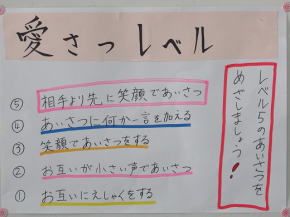 愛さつレベル
⑤ 相手より先に笑顔であいさつ
④ あいさつに何か一言を加える
③ 笑顔であいさつをする
② お互いが小さい声であいさつ
① お互いにえしゃくをする
レベル5のあいさつを
めざしましょう!